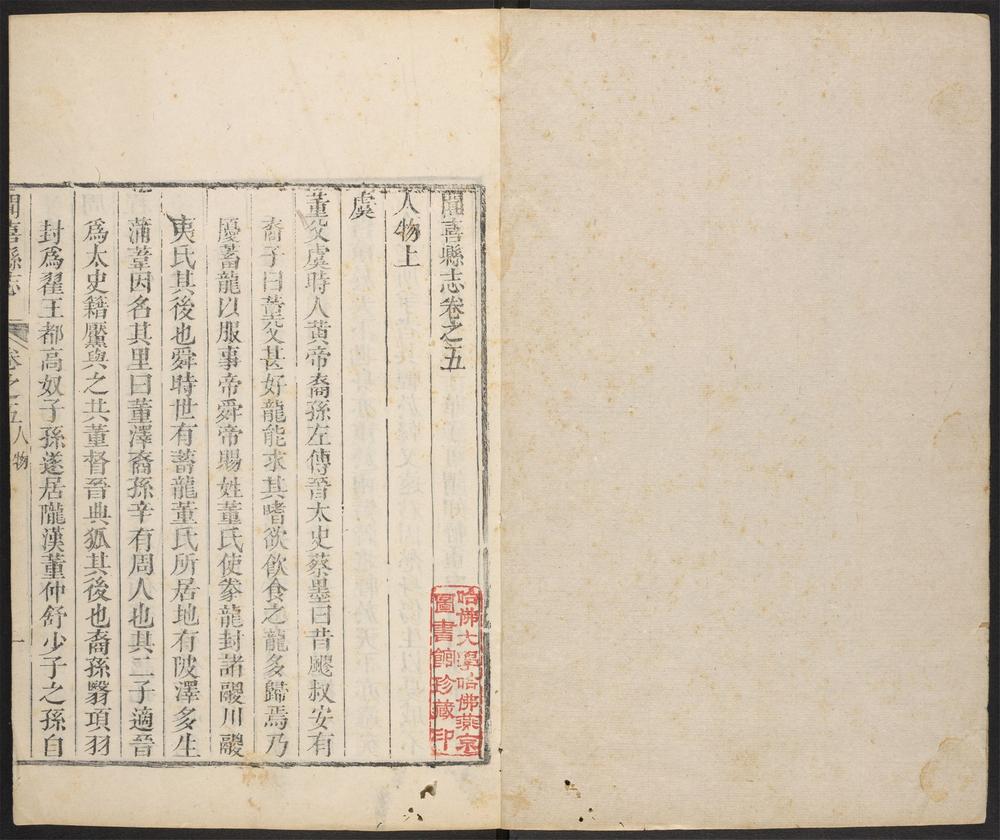 聞喜縣志卷之五
人物上
虞
董父虞時人黃帝裔孫左傳晉太史蔡墨曰昔飂叔安有
裔子曰董父甚好龍能求其嗜欲飲食之龍多歸焉乃
擾蓄龍以服事帝舜帝賜姓董氏使豢龍封諸鬷川鬷
夷氏其後也舜時世有蓄龍董氏所居地有陂澤多生
蒲葦因名其里曰董澤裔孫辛有周人也其二子適晉
爲太史籍黶與之共董督晉典狐其後也裔孫翳項羽
封爲翟王都高奴子孫遂居隴漢董仲舒少子之孫自
聞喜縣志 卷之五 人物 一
哈佛大學哈佛燕京
圖書館珍藏印